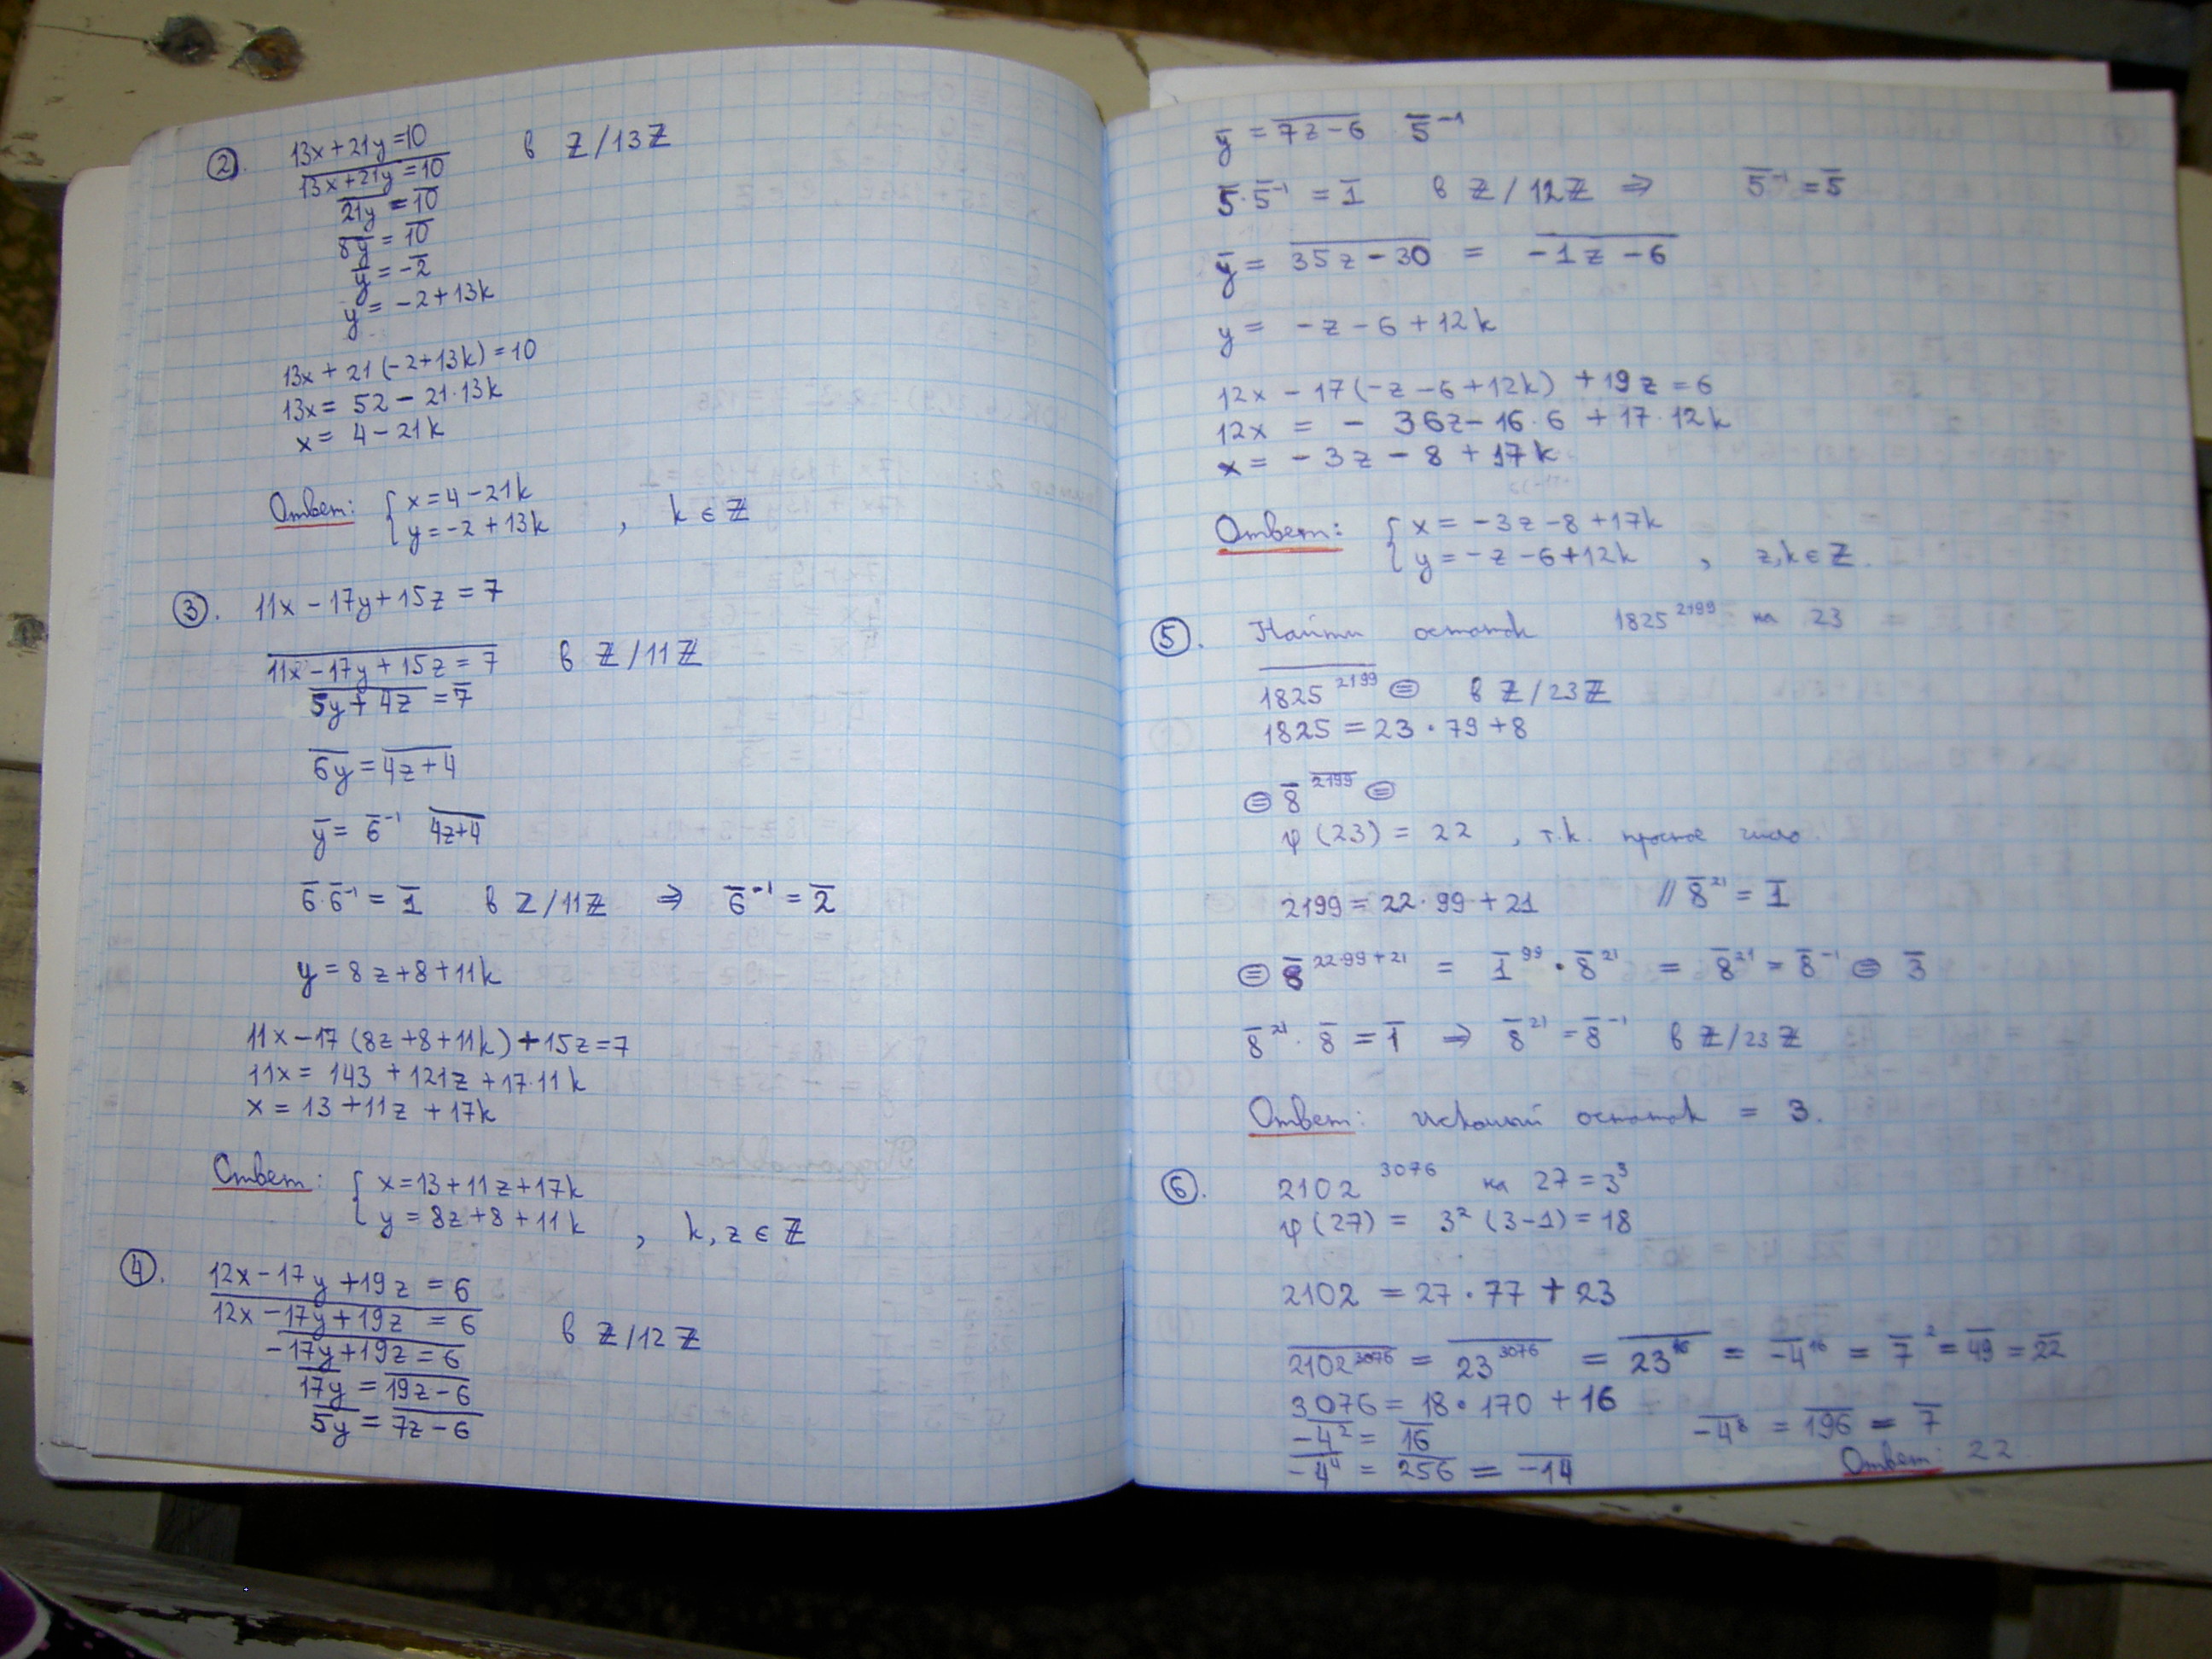 2. 13x+21y=10 в Z/13Z
13x+21y=10
21y = 10
8y = 10
y = -2
y = -2+13k
13x + 21(-2+13k) = 10
13x = 52 - 21·13k
x = 4 - 21k
Ответ: { x = 4 - 21k
y = -2 + 13k , k ∈ Z
3. 11x - 17y + 15z = 7
11x - 17y + 15z = 7 в Z/11Z
5y + 4z = 7
6y = 4z+4
y = 6⁻¹ 4z+4
6·6⁻¹ = 1 в Z/11Z ⇒ 6⁻¹ = 2
y = 8z+8+11k
11x - 17(8z+8+11k) + 15z = 7
11x = 143 + 121z + 17·11k
x = 13 + 11z + 17k
Ответ: { x = 13+11z+17k
y = 8z+8+11k , k, z ∈ Z
4. 12x - 17y + 19z = 6
12x - 17y + 19z = 6 в Z/12Z
-17y + 19z = 6
17y = 19z - 6
5y = 7z - 6
y = 7z-6 · 5⁻¹
5·5⁻¹ = 1 в Z/12Z ⇒ 5⁻¹ = 5
y = 35z - 30 = -1z - 6
y = -z - 6 + 12k
12x - 17(-z - 6 + 12k) + 19z = 6
12x = - 36z - 16·6 + 17·12k
x = -3z - 8 + 17k
Ответ: { x = -3z - 8 + 17k
y = -z - 6 + 12k , z, k ∈ Z.
5. Найти остаток 1825²¹⁹⁹ на 23
1825²¹⁹⁹ = в Z/23Z
1825 = 23·79+8
= 8²¹⁹⁹ =
φ(23) = 22, т.к. простое число.
2199 = 22·99 + 21 // 8²¹ = 1
= 8²²·⁹⁹⁺²¹ = 1⁹⁹·8²¹ = 8²¹ = 8⁻¹ = 3
8²¹·8 = 1 ⇒ 8²¹ = 8⁻¹ в Z/23Z
Ответ: искомый остаток = 3.
6. 2102³⁰⁷⁶ на 27 = 3³
φ(27) = 3²(3-1) = 18
2102 = 27·77 + 23
2102³⁰⁷⁶ = 23³⁰⁷⁶ = 23¹⁶ = -4¹⁶ = 7² = 49 = 22
3076 = 18·170 + 16
-4² = 16 -4⁸ = 196 = 7
-4⁴ = 256 = -14 Ответ: 22